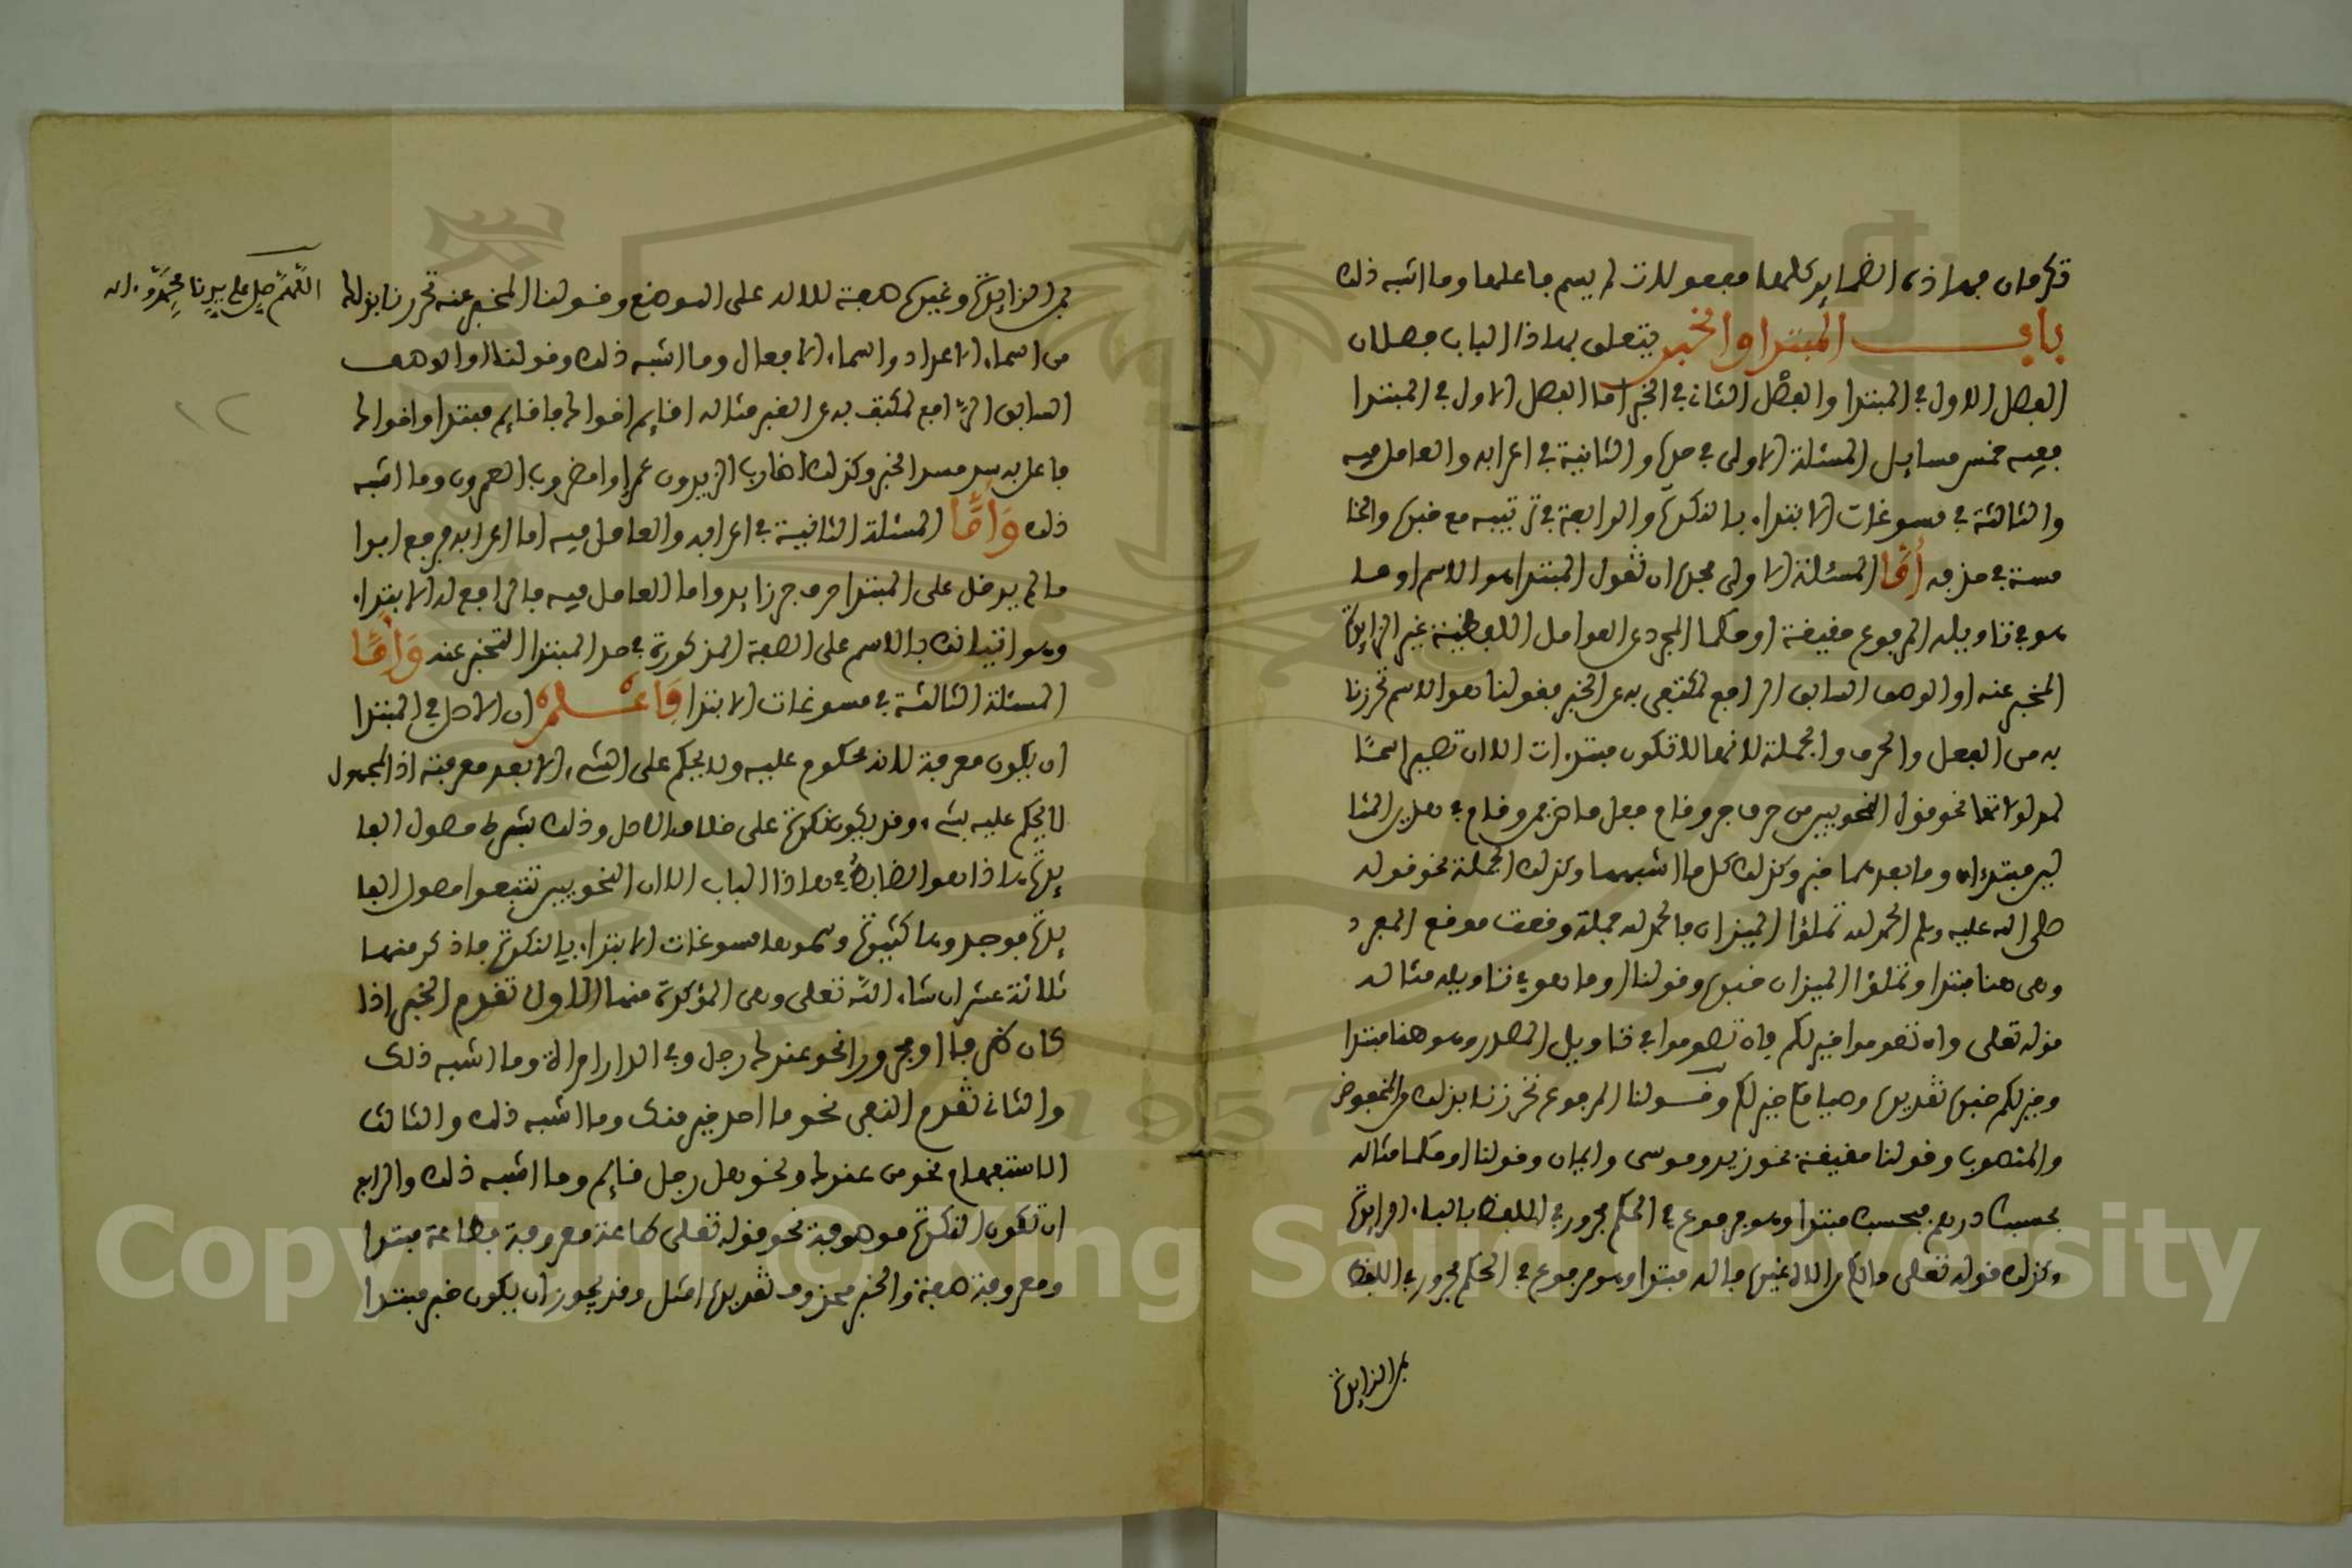 تكرمان فهاذه الضماير كلها مفعولات لم يسم فاعلها وما اشبه ذلك
باب المبتدا والخبر يتعلق بهاذا الباب فصلان
الفصل الاول في المبتدا والفصل الثاني في الخبر اما الفصل الاول في المبتدا
ففيه خمس مسايل المسئلة الاولى في حده والثانية في اعرابه والعامل فيه
والثالثة في مسوغات الابتداء بالنكرة والرابعة في ترتيبه مع خبره والخا
مسة في حذفه أمّا المسئلة الاولى فحده ان تقول المبتدا هو الاسم او ما
هو في تاويله المرفوع حقيقة او حكما المجرد عن العوامل اللفظية غير الزايدة
المخبر عنه او الوصف السابق الرافع لمكتفى به عن الخبر فقولنا هو الاسم تحرزنا
به من الفعل والحرف والجملة لانها لا تكون مبتدءات الا ان تصير اسمًا
لمدلولاتها نحو قول النحويين من حرف جر وقام فعل ماض فمن وقام في هذين المثا
لين مبتدءان وما بعدهما خبر وكذلك كل ما اشبههما وكذلك الجملة نحو قوله
صلى الله عليه وسلم الحمد لله تملؤا الميزان فالحمد لله جملة وقعت موقع المفرد
وهى هنا مبتدا وتملؤا الميزان خبره وقولنا او ما هو في تاويله مثاله
قوله تعلى وان تصوموا خير لكم فان تصوموا في تاويل المصدر وهو هنا مبتدا
وخير لكم خبره تقديره وصيامكم خير لكم وقولنا المرفوع تحرزنا بذلك من المخفوض
والمنصوب وقولنا حقيقة نحو زيد وموسى وقولنا او حكما مثاله
بحسبك درهم فبحسبك مبتدا وهو مرفوع في الحكم مجرور في اللفظ بالباء الزايدة
وكذلك قوله تعلى مالكم من الاه غيره فالاه مبتدا وهو مرفوع في الحكم مجرور في اللفظ
بمن الزايدة
اللهم صل على سيدنا محمد واله
بمن الزايدة وغيره صفة للاله على الموضع وقولنا المخبر عنه تحرزنا بذلك
من اسماء الاعداد واسماء الافعال وما اشبه ذلك وقولنا او الوصف
السابق الرافع لمكتف به عن الخبر مثاله اقايم اخواك فقايم مبتدا واخواك
فاعل به سد مسد الخبر وكذلك اضارب الزيدون عمرا او امضروب العمرون وما اشبه
ذلك وَأمَّا المسئلة الثانية في اعرابه والعامل فيه اما اعرابه فرفع ابدا
ما لم يدخل على المبتدا حرف جر زايد واما العامل فيه فالرافع له الابتداء
وهو اتيانك بالاسم على الصفة المذكورة في حد المبتدا المخبر عنه وَأمَّا
المسئلة الثالثة في مسوغات الابتدا فَاعْلم ان الاصل في المبتدا
ان يكون معرفة لانه محكوم عليه ولا يحكم على الشيء الا بعد معرفته اذ المجهول
لا يحكم عليه بشيء وقد يكون نكرة على خلاف الاصل وذلك بشرط حصول الفا
يدة هاذا هو الضابط في هاذا الباب الا ان النحويين تتبعوا حصول الفا
يدة فوجدوها كثيرة وسموها مسوغات الابتداء بالنكرة فاذكر منها
ثلاثة عشر ان شاء الله تعلى وهى المؤكدة منها الاول تقدم الخبر اذا
كان ظرفا او مجرورا نحو عندك رجل وفي الدار امراة وما اشبه ذلك
والثاني تقدم النفي نحو ما احد خير منك وما اشبه ذلك والثالث
الاستفهام نحو من عندك ونحو هل رجل قايم وما اشبه ذلك والرابع
ان تكون النكرة موصوفة نحو قوله تعلى طاعة معروفة فطاعة مبتدا
ومعروفة صفة والخبر محذوف تقديره امثل وقد يجوز ان يكون خبر مبتدا
Copyright © King Saud University
1957